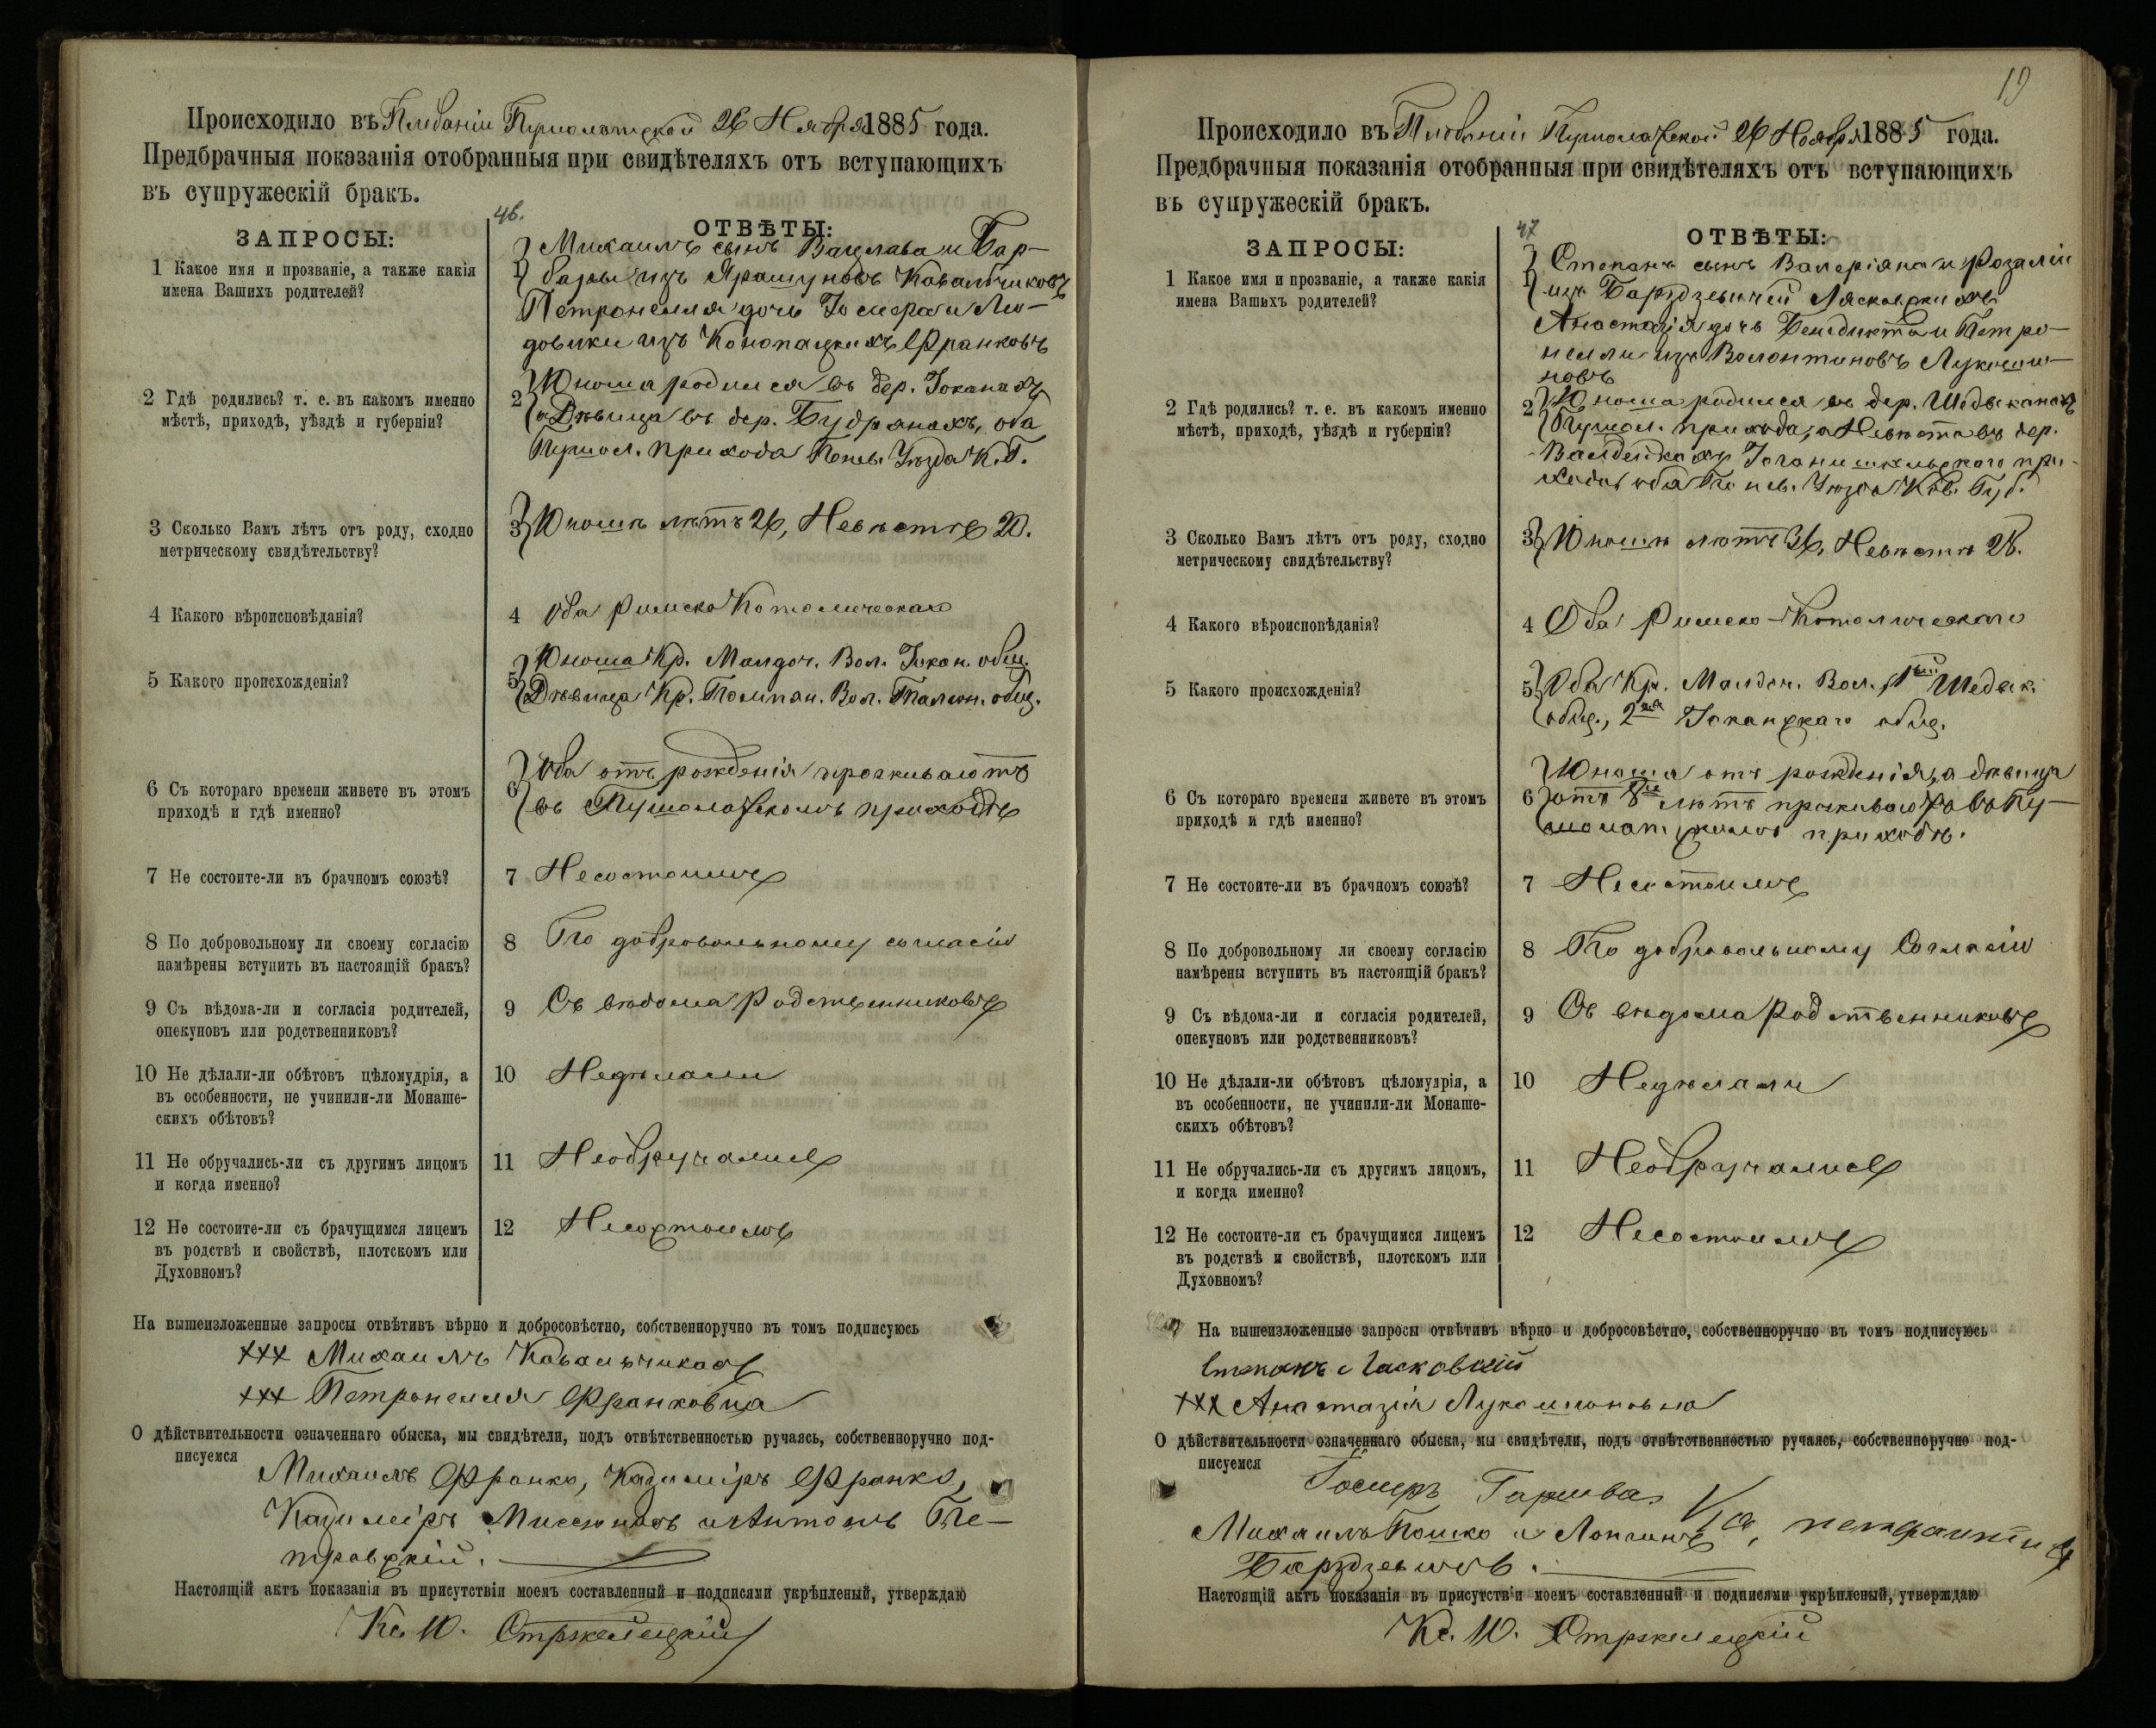 Происходило въ Плебаніи Пушолатской 26 Ноября 1885 года.
Предбрачныя показанія отобранныя при свидѣтеляхъ отъ вступающихъ
въ супружескій бракъ.
46.
ЗАПРОСЫ:
ОТВѢТЫ:
1 Какое имя и прозваніе, а также какія
имена Вашихъ родителей?
1 Михаилъ сынъ Вацлава и Бар-
бары изъ Ярашуновъ Ковальчиковъ
Петронелля дочь Іосифа и Лю-
довики изъ Конопацкихъ Франковъ
2 Гдѣ родились? т. е. въ какомъ именно
мѣстѣ, приходѣ, уѣздѣ и губерніи?
2 Юноша родился въ дер. Іоканахъ
а Дѣвица въ дер. Будранахъ, оба
Пушол. прихода Понев. Уѣзда К. Г.
3 Сколько Вамъ лѣтъ отъ роду, сходно
метрическому свидѣтельству?
3 Юношѣ лѣтъ 26, Невѣстѣ 20.
4 Какого вѣроисповѣданія?
4 Оба Римско Католическаго
5 Какого происхожденія?
5 Юноша Кр. Вол. Іокан. общ.
Дѣвица Кр. Помпян. Вол. общ.
6 Съ котораго времени живете въ этомъ
приходѣ и гдѣ именно?
6 Оба отъ рожденія проживаютъ
въ Пушолатскомъ приходѣ
7 Не состоите-ли въ брачномъ союзѣ?
7 Несостоимъ
8 По добровольному ли своему согласію
намѣрены вступить въ настоящій бракъ?
8 По добровольному согласію
9 Съ вѣдома-ли и согласія родителей,
опекуновъ или родственниковъ?
9 Съ вѣдома Родственниковъ
10 Не дѣлали-ли обѣтовъ цѣломудрія, а
въ особенности, не учинили-ли Монаше-
скихъ обѣтовъ?
10 Недѣлали
11 Не обручались-ли съ другимъ лицомъ
и когда именно?
11 Необручались
12 Не состоите-ли съ брачущимся лицемъ
въ родствѣ и свойствѣ, плотскомъ или
Духовномъ?
12 Несостоимъ
На вышеизложенные запросы отвѣтивъ вѣрно и добросовѣстно, собственноручно въ томъ подписуюсь
+++ Михаилъ
+++ Петронелля Франковна
О дѣйствительности означеннаго обыска, мы свидѣтели, подъ отвѣтственностью ручаясь, собственноручно под-
писуемся
Михаилъ Франко, Казиміръ Франко,
Казиміръ Мисюнасъ и Антонъ Пе-
тровскій.
Настоящій актъ показанія въ присутствіи моемъ составленный и подписями укрѣпленый, утверждаю
Кс. Ю. Стржелецкій
19
Происходило въ Плебаніи Пушолатской 26 Ноября 1885 года.
Предбрачныя показанія отобранныя при свидѣтеляхъ отъ вступающихъ
въ супружескій бракъ.
47
ЗАПРОСЫ:
ОТВѢТЫ:
1 Какое имя и прозваніе, а также какія
имена Вашихъ родителей?
1 Степанъ сынъ Валеріяна и Розаліи
изъ Лясковскихъ
Анастазія дочь Бенедикта и Петро-
нелли изъ Валентиновъ Лукошю-
новъ
2 Гдѣ родились? т. е. въ какомъ именно
мѣстѣ, приходѣ, уѣздѣ и губерніи?
2 Юноша родился въ дер. Шедвеканахъ
Пушол. прихода, а Невѣста въ дер.
при-
хода, оба Понев. Уѣзда Ков. Губ.
3 Сколько Вамъ лѣтъ отъ роду, сходно
метрическому свидѣтельству?
3 Юношѣ лѣтъ 36, Невѣстѣ 28.
4 Какого вѣроисповѣданія?
4 Оба Римско-Католическаго
5 Какого происхожденія?
5 Оба Кр. Вол., 1ый Шедвек.
общ., 2ая Іоканскаго общ.
6 Съ котораго времени живете въ этомъ
приходѣ и гдѣ именно?
6 Юноша отъ рожденія, а дѣвица
отъ 8 лѣтъ проживаютъ въ Пу-
шолатскомъ приходѣ.
7 Не состоите-ли въ брачномъ союзѣ?
7 Несостоимъ
8 По добровольному ли своему согласію
намѣрены вступить въ настоящій бракъ?
8 По добровольному Согласію
9 Съ вѣдома-ли и согласія родителей,
опекуновъ или родственниковъ?
9 Съ вѣдома Родственниковъ
10 Не дѣлали-ли обѣтовъ цѣломудрія, а
въ особенности, не учинили-ли Монаше-
скихъ обѣтовъ?
10 Недѣлали
11 Не обручались-ли съ другимъ лицомъ,
и когда именно?
11 Необручались
12 Не состоите-ли съ брачущимся лицемъ
въ родствѣ и свойствѣ, плотскомъ или
Духовномъ?
12 Несостоимъ
На вышеизложенные запросы отвѣтивъ вѣрно и добросовѣстно, собственноручно въ томъ подписуюсь
Степанъ Ласковскій
+++ Анастазія Лукошюновна
О дѣйствительности означеннаго обыска, мы свидѣтели, подъ отвѣтственностью ручаясь, собственноручно под-
писуемся
Іосифъ Гаршва
Михаилъ Пошко и
Настоящій актъ показанія въ присутствіи моемъ составленный и подписями укрѣпленый, утверждаю
Кс. Ю. Стржелецкій